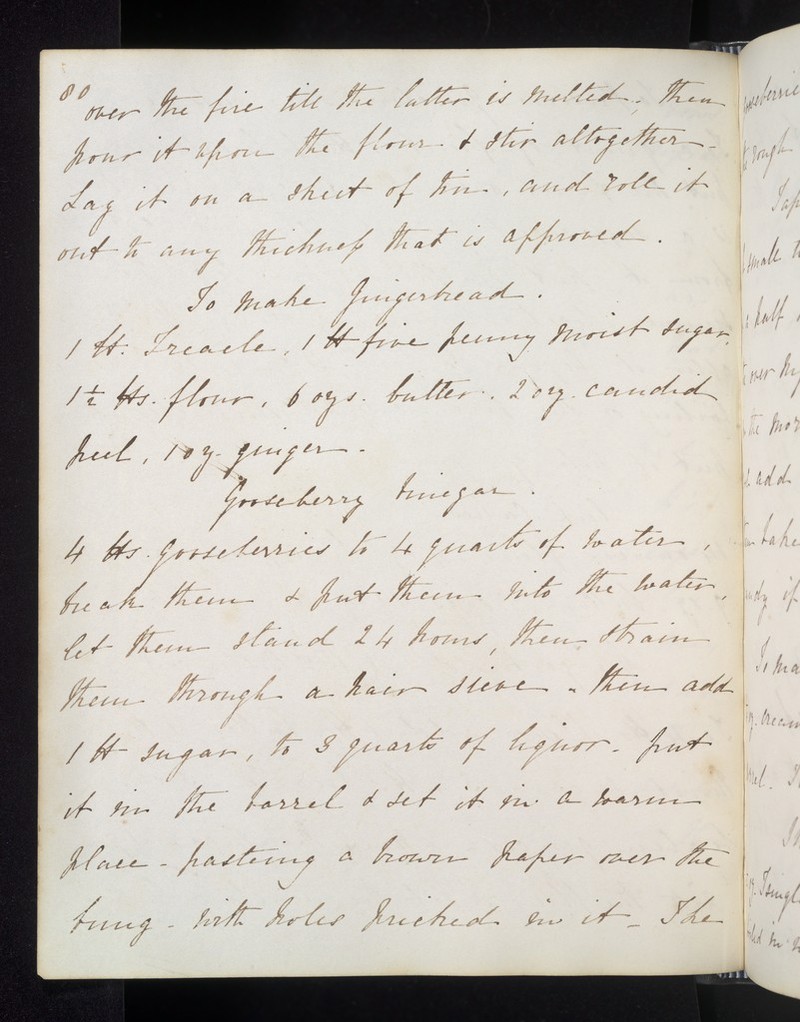 80
over the fire till the latter is melted, then
pour it upon the flour & stir altogether -
Lay it on a sheet of tin, and roll it
out to any thickness that is approved.
To make Gingerbread.
1 lb. Treacle, 1 lb five penny moist sugar,
1½ lbs. flour, 6 ozs. butter. 2 oz. candid
peel, 1 oz. ginger.
Gooseberry Vinegar.
4 lbs. Gooseberries to 4 quarts of water,
break them & put them into the water,
let them stand 24 hours, then strain
them through a hair sieve - then add
1 lb sugar, to 3 quarts of liquor - put
it in the barrel & set it in a warm
place - pasteing a brown paper over the
bung - with holes pricked in it - The